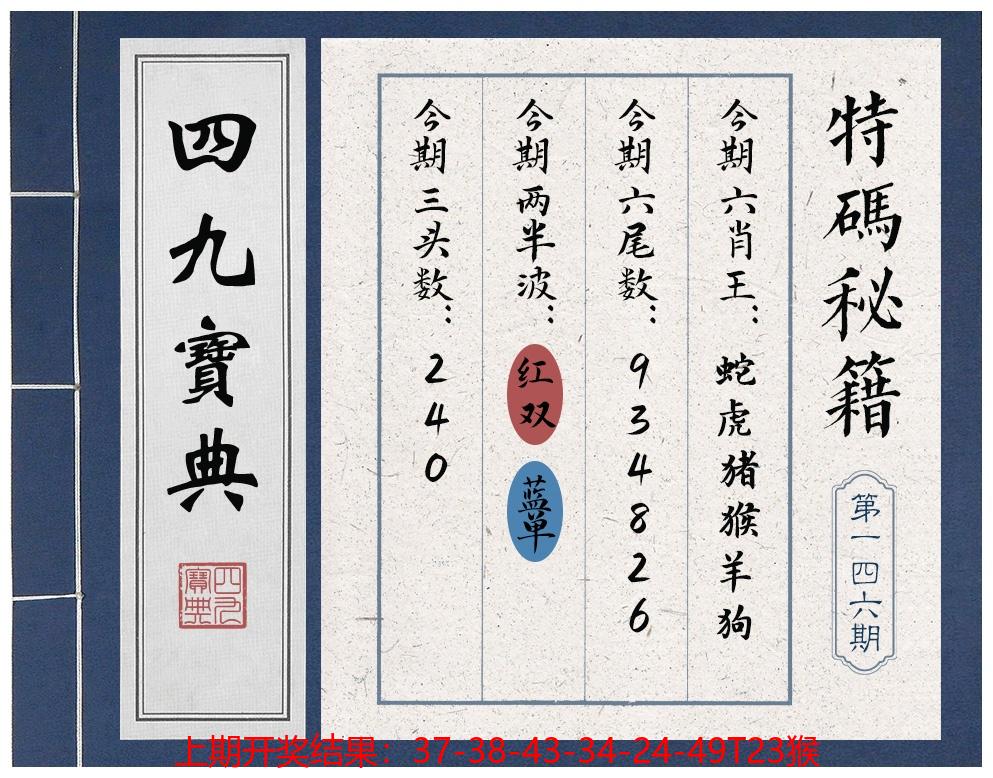 特碼秘籍
第一四六期
今期六肖王：蛇虎猪猴羊狗
今期六尾数：934826
今期两半波：红双 蓝单
今期三头数：240
四九寶典
四九寶典
上期开奖结果：37-38-43-34-24-49T23猴